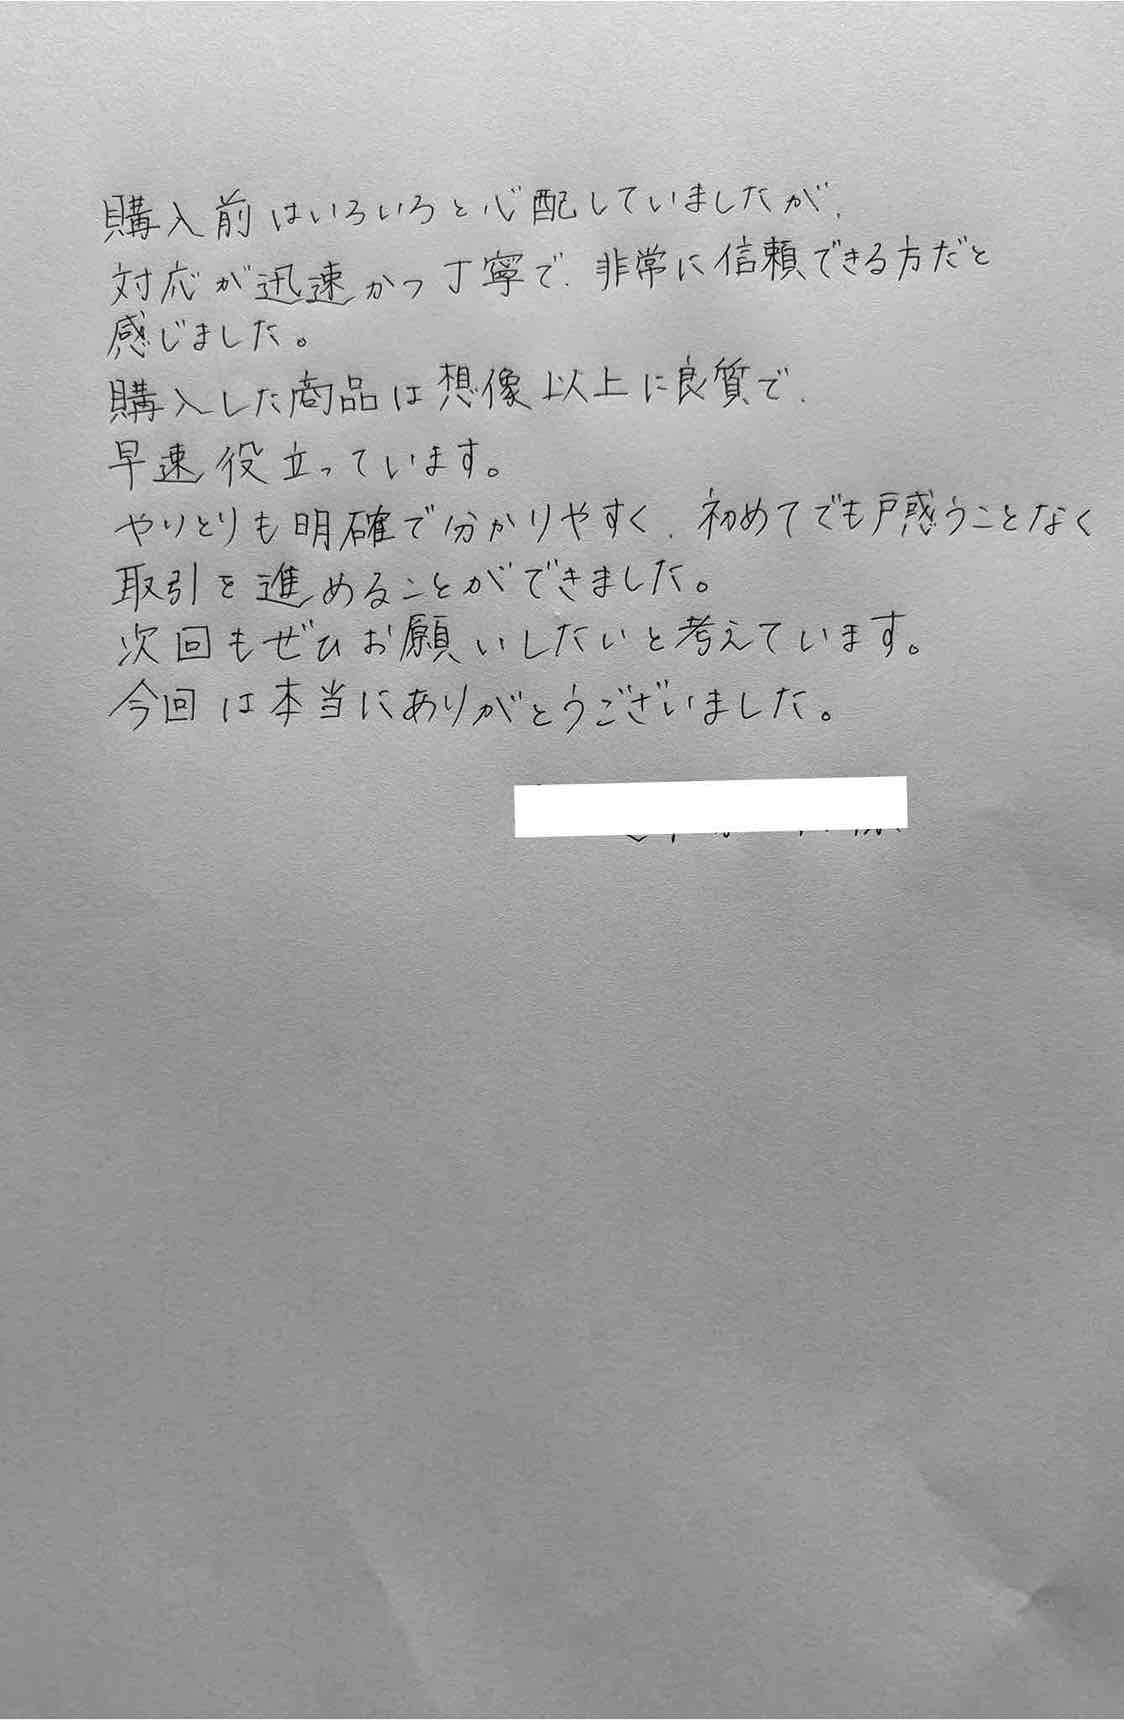 購入前はいろいろと心配していましたが、
対応が迅速かつ丁寧で、非常に信頼できる方だと
感じました。
購入した商品は想像以上に良質で、
早速役立っています。
やりとりも明確で分かりやすく、初めてでも戸惑うことなく
取引を進めることができました。
次回もぜひお願いしたいと考えています。
今回は本当にありがとうございました。